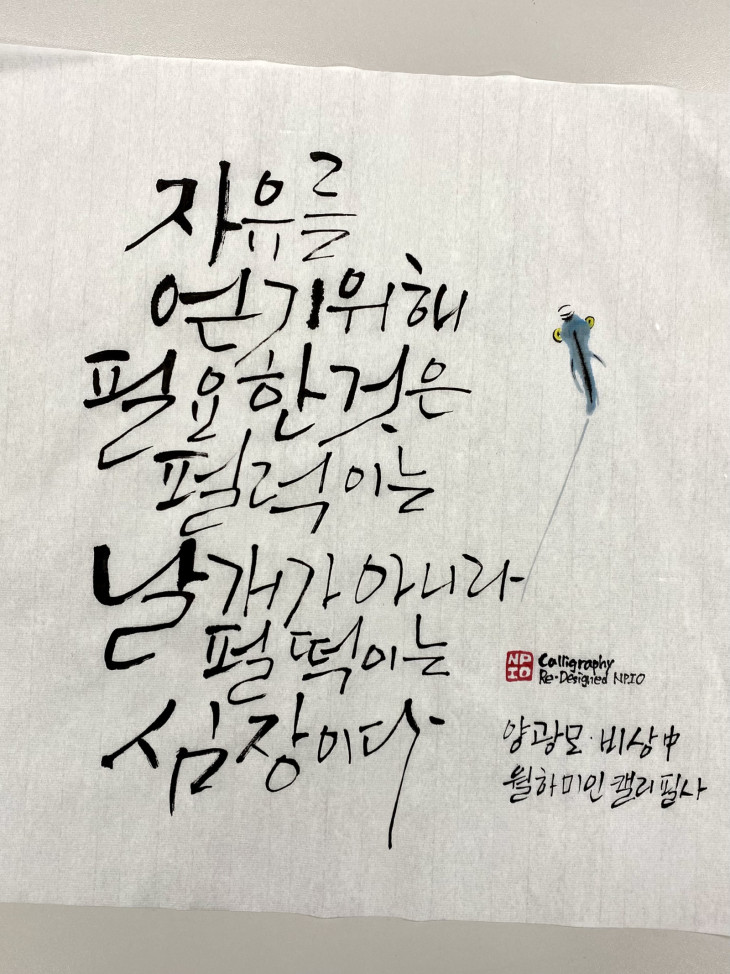 자유를
얻기위해
필요한것은
펄럭이는
날개가 아니라
펄떡이는
심장이다
NP
IO
Calligraphy
Re-Designed NPIO
양광모·비상中
월하미인 캘리필사